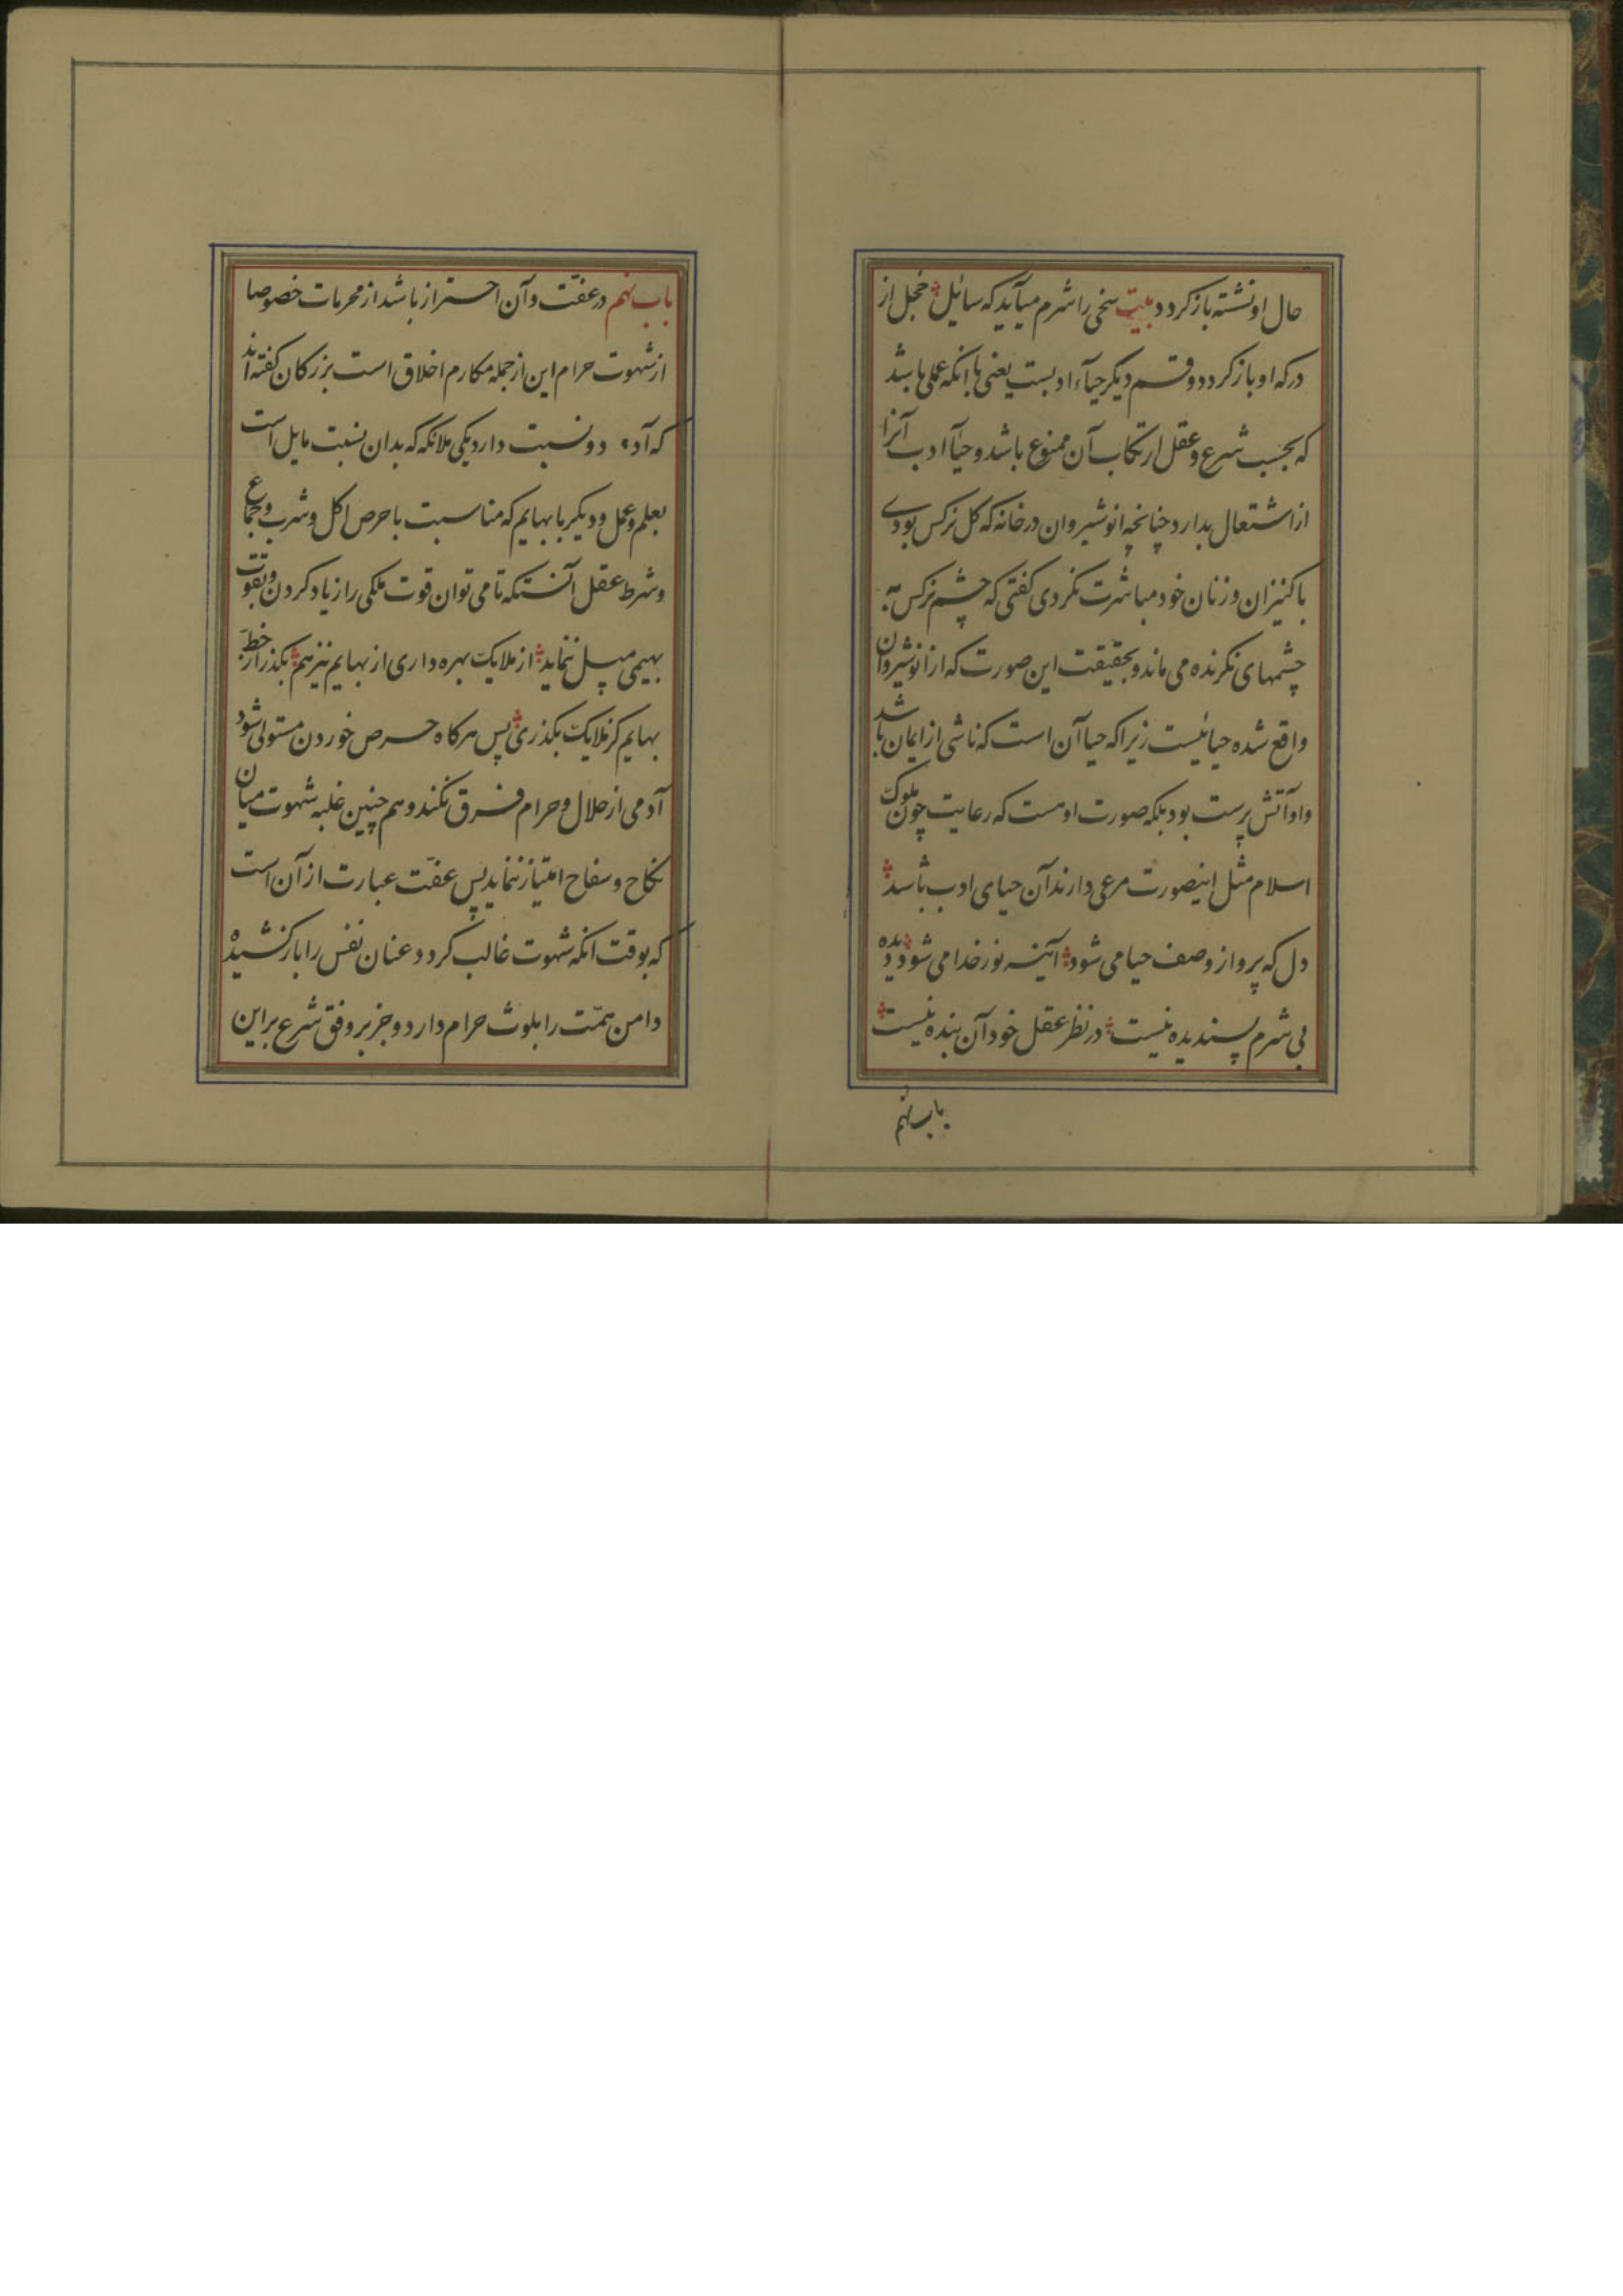 حال او نشته باز کردد بیت سخی را شرم میآید که سائیل خجل از
درکه او باز کردد و قسم دیکر حیآء ادبست یعنی با انکه عملی باشد
که بحسب شرع و عقل ارتکاب آن ممنوع باشد و حیآ ادب آنرا
از اشتعال بدارد چنانچه انوشیروان در خانه که کل نرکس بودی
با کنیزان و زنان خود مباشرت نکردی کفتی که چشم نرکس به
چشمهای نکرنده می ماند و بحقیقت این صورت که از انوشیروان
واقع شده حیا نیست زیرا که حیا آن است که ناشی از ایمان باشد
و او آتش پرست بود بلکه صورت اوست که رعایت چون ملوک
اسلام مثل اینصورت مرعی دارند آن حیای ادب باشد
دل که پر و از وصف حیا می شود آئینه نور خدا می شود دیده
بی شرم پسندیده نیست در نظر عقل خود آن بنده نیست
باب نهم
باب نهم در عفّت و آن احتراز باشد از محرمات خصوصا
از شهوت حرام این از جمله مکارم اخلاق است بزرکان کفته اند
که آدم دو نسبت دارد یکی ملائکه که بدان نسبت مایل است
بعلم و عمل و دیکر با بهایم که مناسبت با حرص اکل و شرب و جماع
و شرط عقل آنستکه تا می توان قوت ملکی را زیاد کردن و بقوت
بهیمی میل ننماید از ملایک بهره داری از بهایم نیز هم بکذر از خط
بهایم کز ملایک بکذری پس هرکاه حرص خوردن مستولی شود
آدمی از حلال و حرام فرق نکند و هم چنین غلبه شهوت میان
نکاح و سفاح امتیاز ننماید پس عفّت عبارت از آن است
که بوقت انکه شهوت غالب کردد عنان نفس را باز کشیده
دامن همّت را بلوث حرام دارد و جز بر وفق شرع براین